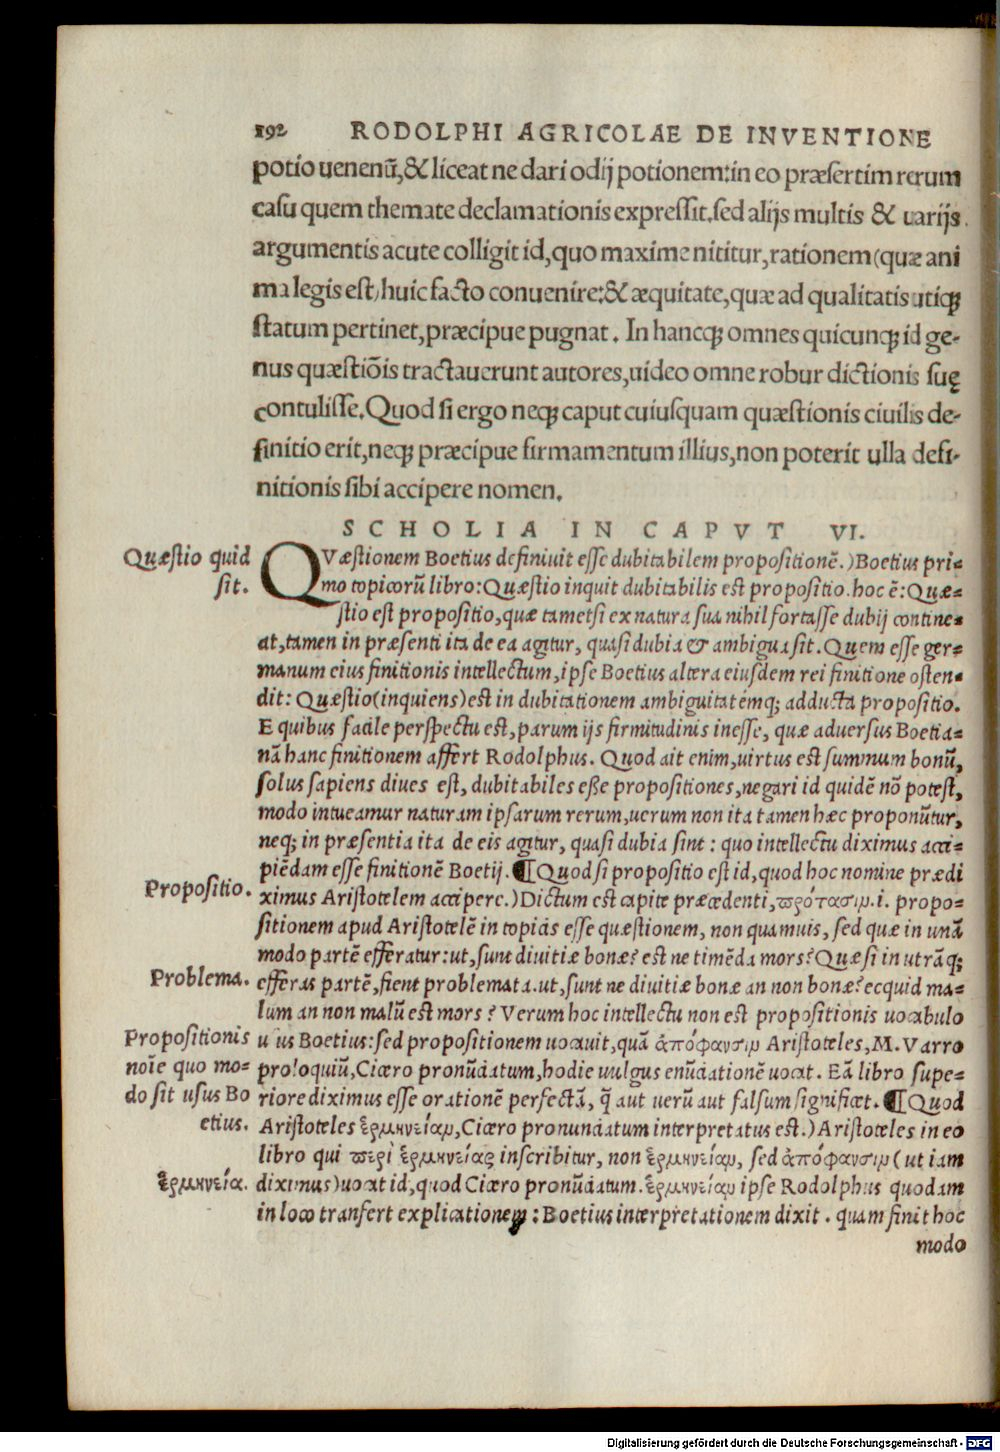 192 RODOLPHI AGRICOLAE DE INVENTIONE
potio uenenū,& liceat ne dari odij potionem:in eo præsertim rerum
casu quem themate declamationis expressit.sed alijs multis & uarijs
argumentis acute colligit id,quo maxime nititur,rationem(quæ ani
ma legis est)huic facto conuenire:& æquitate,quæ ad qualitatis utiqꝫ
statum pertinet,præcipue pugnat. In hancqꝫ omnes quicunqꝫ id ge-
nus quæstiōis tractauerunt autores,uideo omne robur dictionis suę
contulisse.Quod si ergo neqꝫ caput cuiusquam quæstionis ciuilis de-
finitio erit,neqꝫ præcipue firmamentum illius,non poterit ulla defi-
nitionis sibi accipere nomen.
SCHOLIA IN CAPVT VI.
Quæstio quid
sit.
QVæstionem Boetius definiuit esse dubitabilem propositionē.)Boetius pri-
mo topicorū libro:Quæstio inquit dubitabilis est propositio.hoc ē:Quæ-
stio est propositio,quæ tametsi ex natura sua nihil fortasse dubij contine-
at,tamen in præsenti ita de ea agitur, quasi dubia & ambigua sit.Quem esse ger-
manum eius finitionis intellectum,ipse Boetius altera eiusdem rei finitione osten-
dit: Quæstio(inquiens)est in dubitationem ambiguitatémqꝫ adducta propositio.
E quibus facile perspectu est,parum ijs firmitudinis inesse, quæ aduersus Boetia-
nā hanc finitionem affert Rodolphus. Quod ait enim,uirtus est summum bonū,
solus sapiens diues est, dubitabiles esse propositiones,negari id quidē nō potest,
modo intueamur naturam ipsarum rerum,uerum non ita tamen hæc proponūtur,
neqꝫ in præsentia ita de eis agitur, quasi dubia sint : quo intellectu diximus acci-
piēdam esse finitionē Boetij. ¶Quod si propositio est id,quod hoc nomine prædi
Propositio.
ximus Aristotelem accipere.)Dictum est capite præcedenti,πρότασιν.i. propo-
sitionem apud Aristotelē in topicis esse quæstionem, non quamuis, sed quæ in unā
modo partē efferatur:ut,sunt diuitiæ bonæ? est ne timēda mors?Quæ si in utrāqꝫ
Problema.
efferas partē,fient problemata.ut,sunt ne diuitiæ bonæ an non bonæ?ecquid ma-
lum an non malū est mors ? Verum hoc intellectu non est propositionis uocabulo
Propositionis
noīe quo mo-
do sit usus Bo
etius.
u us Boetius:sed propositionem uocauit,quā ἀπόφανσιν Aristoteles,M.Varro
proloquiū,Cicero pronūciatum,hodie uulgus enūciationē uocat. Eā libro supe-
riore diximus esse orationē perfectā, q̄ aut uerū aut falsum significet. ¶Quod
Aristoteles ἑρμηνείαν,Cicero pronunciatum interpretatus est.)Aristoteles in eo
libro qui περὶ ἑρμηνείας inscribitur, non ἑρμηνείαν, sed ἀπόφανσιν(ut iam
ἑρμηνεία.
diximus)uocat id,quod Cicero pronūciatum.ἑρμηνείαν ipse Rodolphus quodam
in loco transfert explicationem : Boetius interpretationem dixit . quam finit hoc
modo
Digitalisierung gefördert durch die Deutsche Forschungsgemeinschaft - DFG